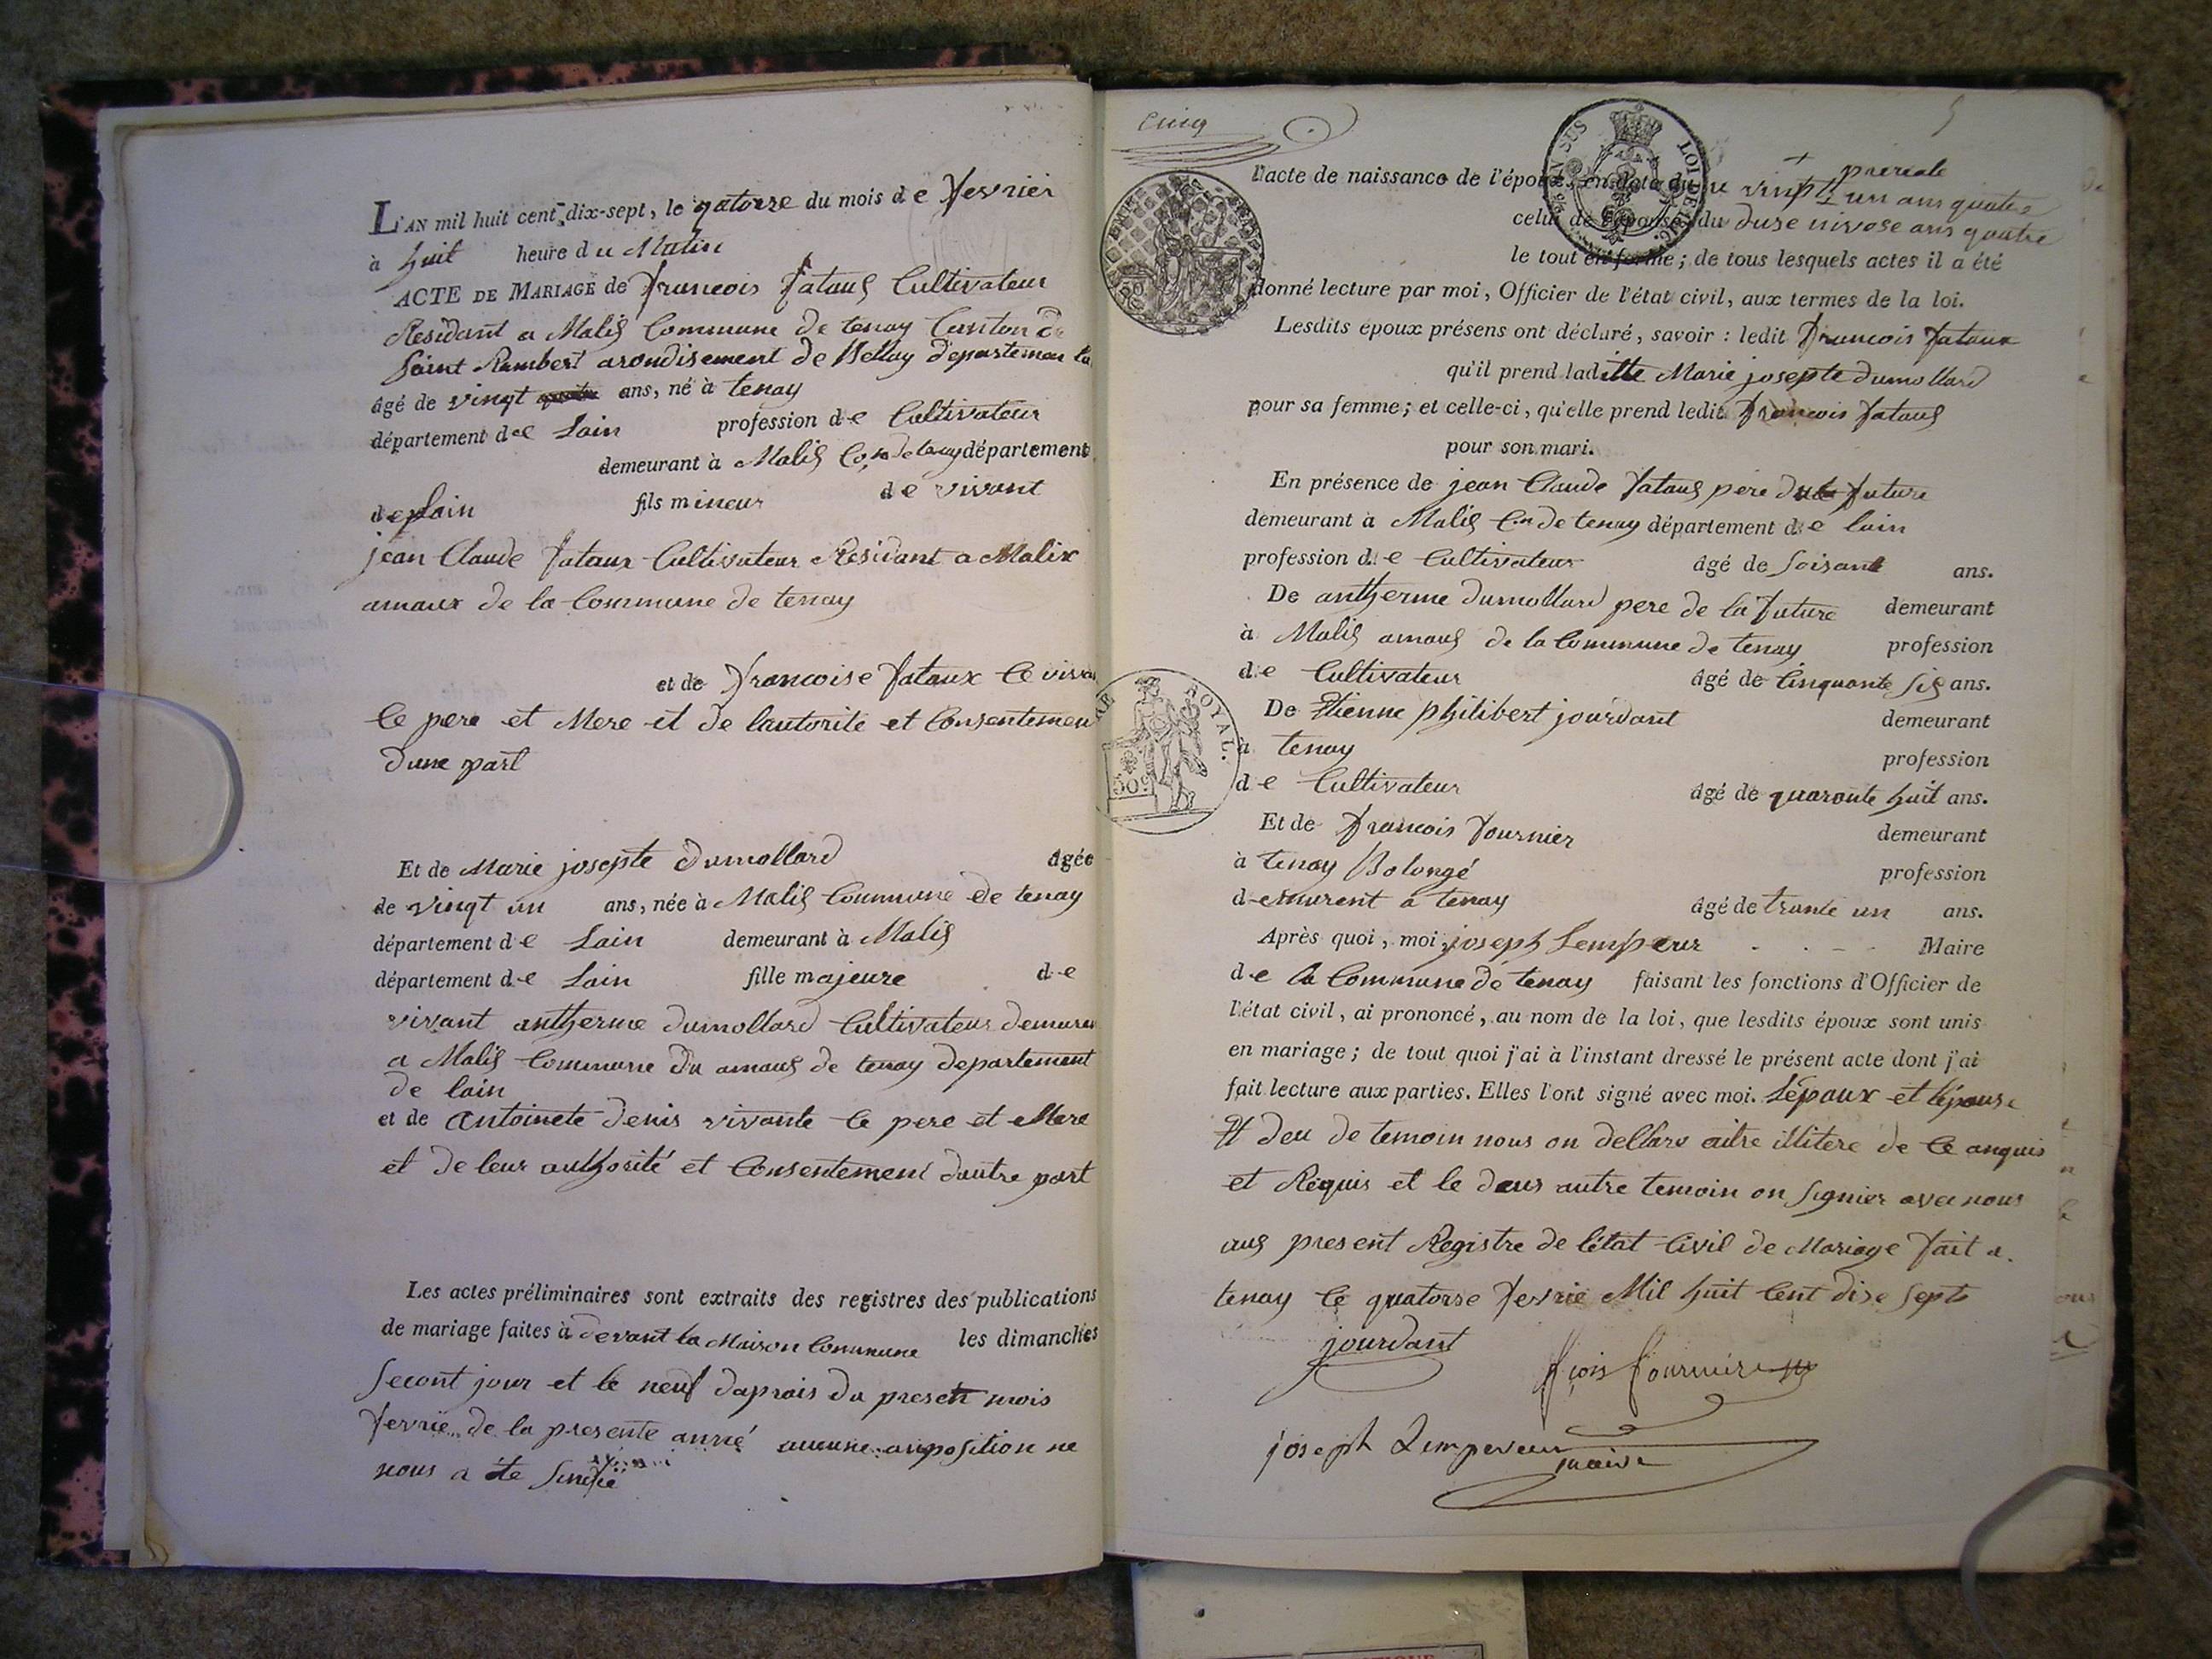 L'AN mil huit cent dix-sept, le qatorze du mois de fevrier
à huit heure du Matin
ACTE DE MARIAGE de francois fataux Cultivateur
Residant a Malix Commune de tenay Canton de
Saint Rambert arondisement de Bellay departemen
âgé de vingt ans, né à tenay
département de Lain profession de Cultivateur
demeurant à Malix Cne de tenay département
de lain fils mineur de vivant
jean Claude fataux Cultivateur Residant a Malix
amaux de la Commune de tenay
et de francoise fataux Ce
Ce pere et Mere et de lautorité et Consentemen
dune part
Et de Marie josepte dumollard âgée
de vingt un ans, née à Malix Commune de tenay
département de Lain demeurant à Malix
département de Lain fille majeure de
vivant antherme dumollard Cultivateur demuran
a Malix Commune du amaux de tenay departement
de lain
et de antoinete denis vivante Ce pere et Mere
et de leur authorité et Consentement dautre part
Les actes préliminaires sont extraits des registres des publications
de mariage faites à devant la Maison Commune les dimanches
Secont jour et le neuf daprais du present mois
fevrie de la presente anné aucune oposition ne
nous a ete
Cinq
5
l'acte de naissance de l'époux, en date du vinpt un ans quatre
prereale
celui de l'épouse, du duse nivose ans quatre
le tout en forme; de tous lesquels actes il a été
donné lecture par moi, Officier de l'état civil, aux termes de la loi.
Lesdits époux présens ont déclaré, savoir : ledit francois fataux
qu'il prend laditte Marie josepte dumollard
pour sa femme; et celle-ci, qu'elle prend ledit francois fataux
pour son mari.
En présence de jean Claude fataux pere du future
demeurant à Malix Cne de tenay département de lain
profession de Cultivateur âgé de Soisante ans.
De antherme dumollard pere de la future demeurant
à Malix amaux de la Commune de tenay profession
de Cultivateur âgé de Cinquante Six ans.
De Etienne philibert jourdant demeurant
à tenay
profession
de Cultivateur âgé de quaronte huit ans.
Et de francois fournier demeurant
à tenay Bolongé profession
demurent a tenay âgé de trante un ans.
Après quoi, moi, joseph Lemperur Maire
de la Commune de tenay faisant les fonctions d'Officier de
l'état civil, ai prononcé, au nom de la loi, que lesdits époux sont unis
en mariage; de tout quoi j'ai à l'instant dressé le présent acte dont j'ai
fait lecture aux parties. Elles l'ont signé avec moi. Lépoux et lépouse
Et deu de temoin nous on dellare aitre illitere de Ce anquis
et Réquis et le deus autre temoin on Signier avec nous
aux present Registre de létat Civil de Mariage fait a
tenay Ce quatorse fevrie Mil huit Cent dise Septs
jourdant
fçois fournier
joseph Lempereur
maire
ROYAL.